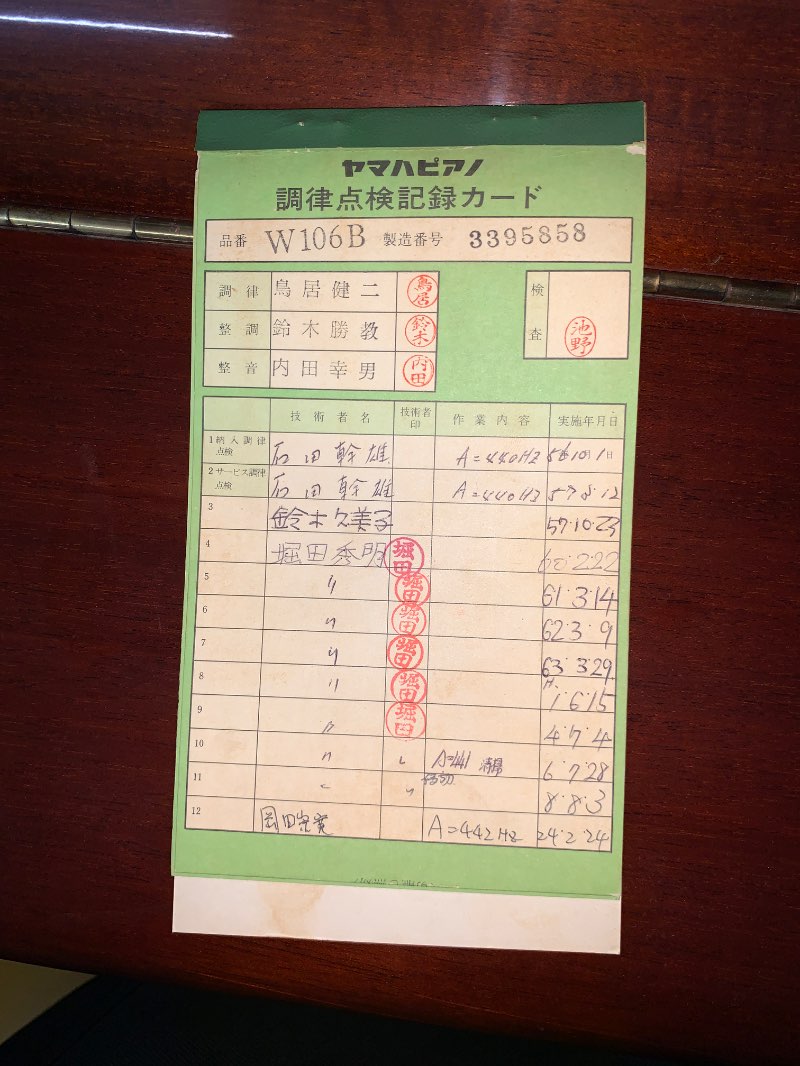 ヤマハピアノ
調律点検記録カード
品番 W106B 製造番号 3395858
調律 鳥居健二 鳥居
整調 鈴木勝教 鈴木
整音 内田幸男 内田
検査 池野
技術者名 技術者印 作業内容 実施年月日
1 納入調律点検 石田幹雄 A=440HZ 56年10月1日
2 サービス調律点検 石田幹雄 A=440HZ 57 8 12
3 鈴木久美子 57.10.23
4 堀田秀明 堀田 60.2.22
5 〃 堀田 61.3.14
6 〃 堀田 62.3.9
7 〃 堀田 63.3.29
8 〃 堀田 H.1.6.15
9 〃 堀田 4.7.4
10 〃 〃 A=441 6.7.28
11 〃 〃 8.8.3
12 岡田 A=442HZ 24.2.24